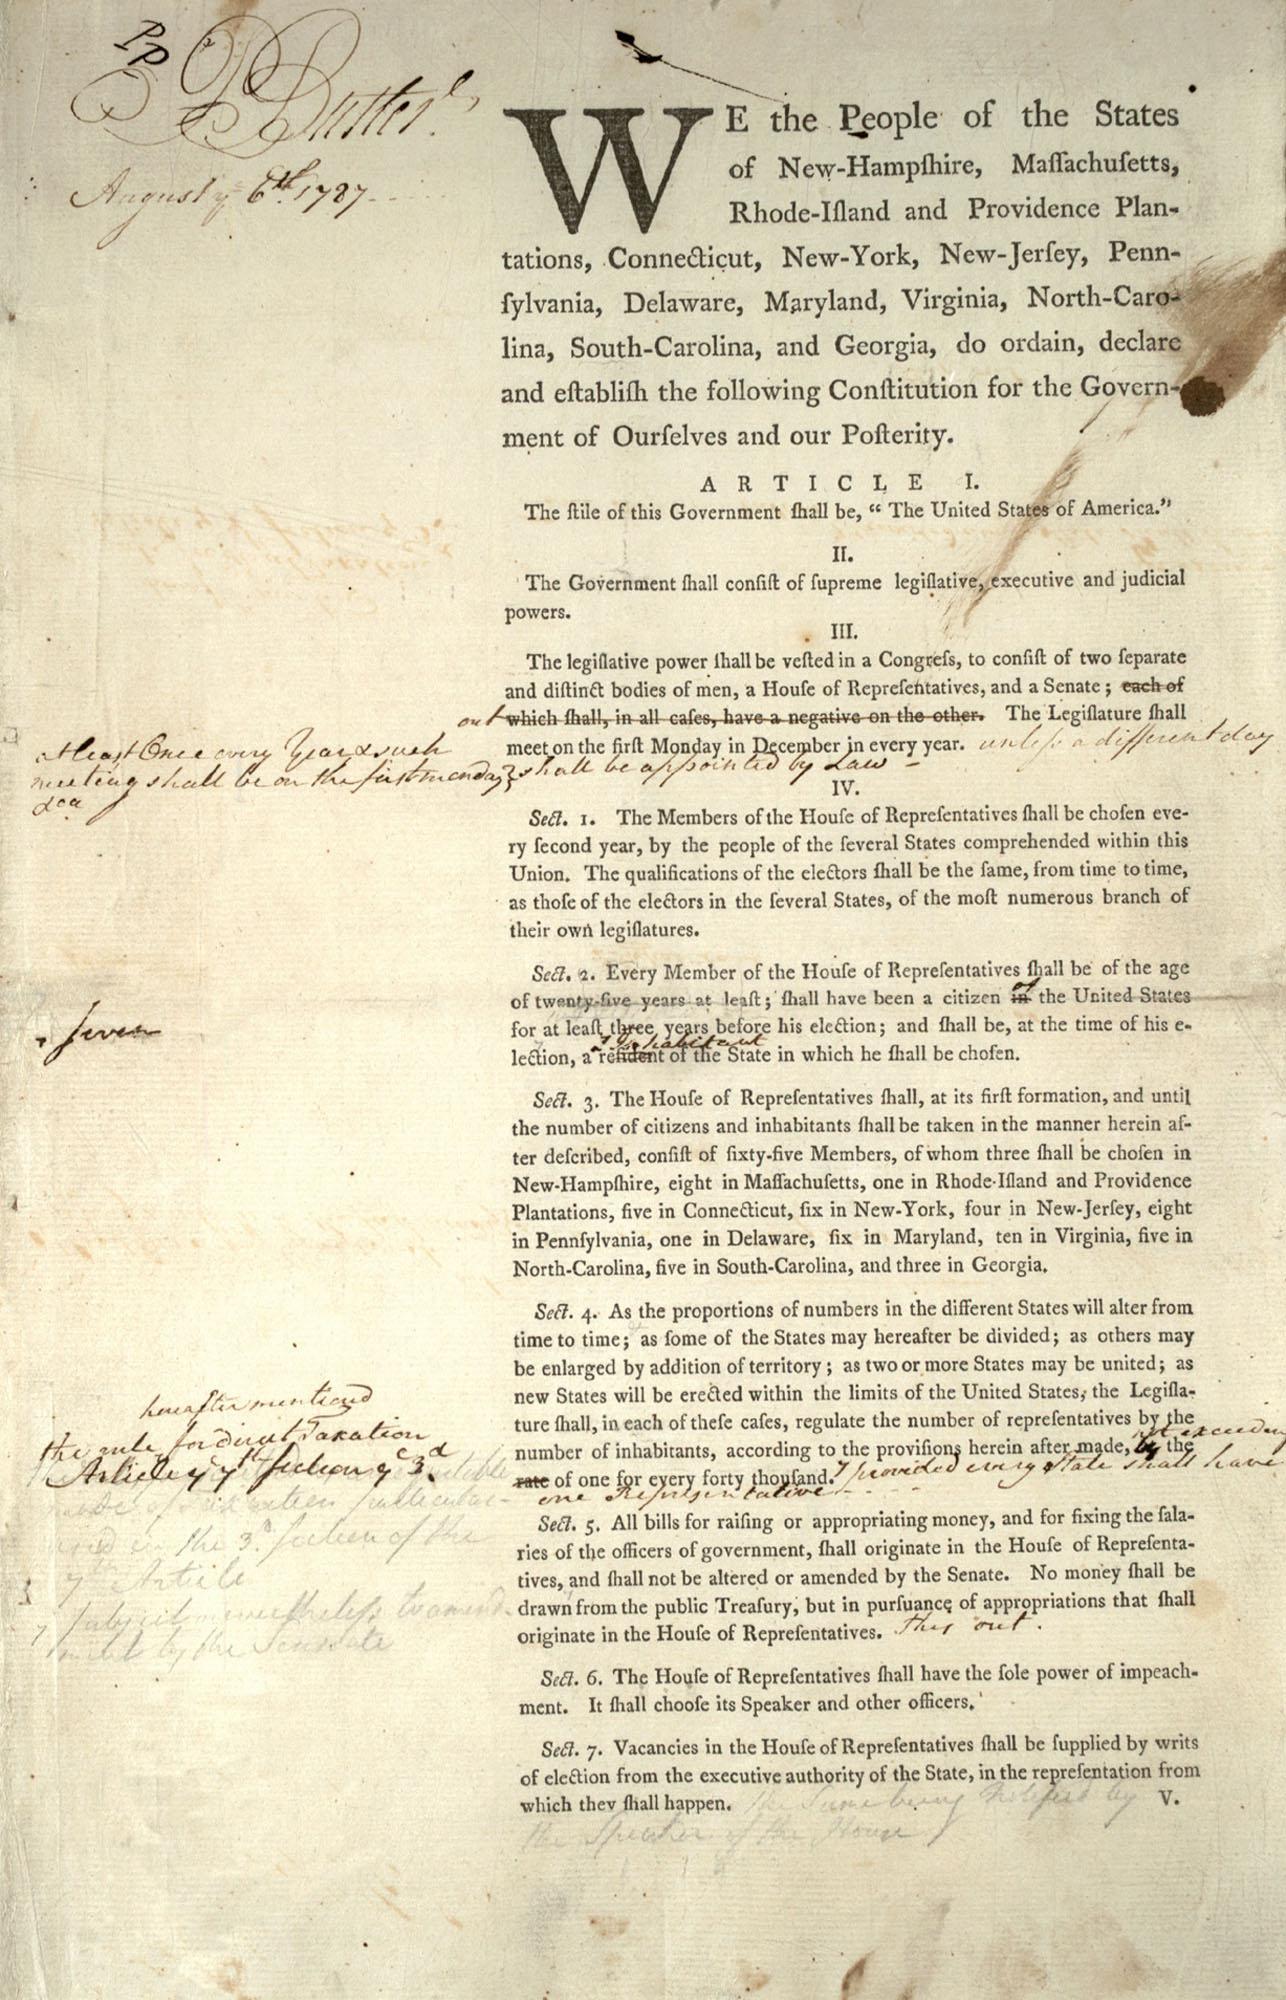 P. Butler
August ye 6th. 1787
WE the People of the States
of New-Hampſhire, Maſſachuſetts,
Rhode-Iſland and Providence Plan-
tations, Connecticut, New-York, New-Jerſey, Penn-
ſylvania, Delaware, Maryland, Virginia, North-Caro-
lina, South-Carolina, and Georgia, do ordain, declare
and eſtabliſh the following Conſtitution for the Govern-
ment of Ourſelves and our Poſterity.
ARTICLE I.
The ſtile of this Government ſhall be, “ The United States of America.”
II.
The Government ſhall conſiſt of ſupreme legiſlative, executive and judicial
powers.
III.
The legiſlative power ſhall be veſted in a Congreſs, to conſiſt of two ſeparate
and diſtinct bodies of men, a Houſe of Repreſentatives, and a Senate ; each of
out which ſhall, in all caſes, have a negative on the other. The Legiſlature ſhall
meet on the firſt Monday in December in every year. unleſs a different day
shall be appointed by Law
at least Once every Year & such
meeting shall be on the first monday
IV.
Sect. 1. The Members of the Houſe of Repreſentatives ſhall be choſen eve-
ry ſecond year, by the people of the ſeveral States comprehended within this
Union. The qualifications of the electors ſhall be the ſame, from time to time,
as thoſe of the electors in the ſeveral States, of the moſt numerous branch of
their own legiſlatures.
Sect. 2. Every Member of the Houſe of Repreſentatives ſhall be of the age
of twenty-five years at leaſt ; ſhall have been a citizen in of the United States
seven
for at leaſt three years before his election ; and ſhall be, at the time of his e-
Inhabitant
lection, a reſident of the State in which he ſhall be choſen.
Sect. 3. The Houſe of Repreſentatives ſhall, at its firſt formation, and until
the number of citizens and inhabitants ſhall be taken in the manner herein af-
ter deſcribed, conſiſt of ſixty-five Members, of whom three ſhall be choſen in
New-Hampſhire, eight in Maſſachuſetts, one in Rhode-Iſland and Providence
Plantations, five in Connecticut, ſix in New-York, four in New-Jerſey, eight
in Pennſylvania, one in Delaware, ſix in Maryland, ten in Virginia, five in
North-Carolina, five in South-Carolina, and three in Georgia.
Sect. 4. As the proportions of numbers in the different States will alter from
time to time ; as ſome of the States may hereafter be divided ; as others may
be enlarged by addition of territory ; as two or more States may be united ; as
new States will be erected within the limits of the United States, the Legiſla-
ture ſhall, in each of theſe caſes, regulate the number of repreſentatives by the
number of inhabitants, according to the proviſions herein after made, at the
not exceeding
rate of one for every forty thouſand. provided every State shall have
one Representative
hereafter mentioned
the rule for direct Taxation
Article ye 7th section ye 3.d
in the 3.d section of the
7th Article
subject nevertheleſs to amend-
ment by the Sennate
Sect. 5. All bills for raiſing or appropriating money, and for fixing the ſala-
ries of the officers of government, ſhall originate in the Houſe of Repreſenta-
tives, and ſhall not be altered or amended by the Senate. No money ſhall be
drawn from the public Treaſury, but in purſuance of appropriations that ſhall
originate in the Houſe of Repreſentatives. this out.
Sect. 6. The Houſe of Repreſentatives ſhall have the ſole power of impeach-
ment. It ſhall chooſe its Speaker and other officers.
Sect. 7. Vacancies in the Houſe of Repreſentatives ſhall be ſupplied by writs
of election from the executive authority of the State, in the repreſentation from
which they ſhall happen. the Same being Notified by
V.
the Speaker of the House